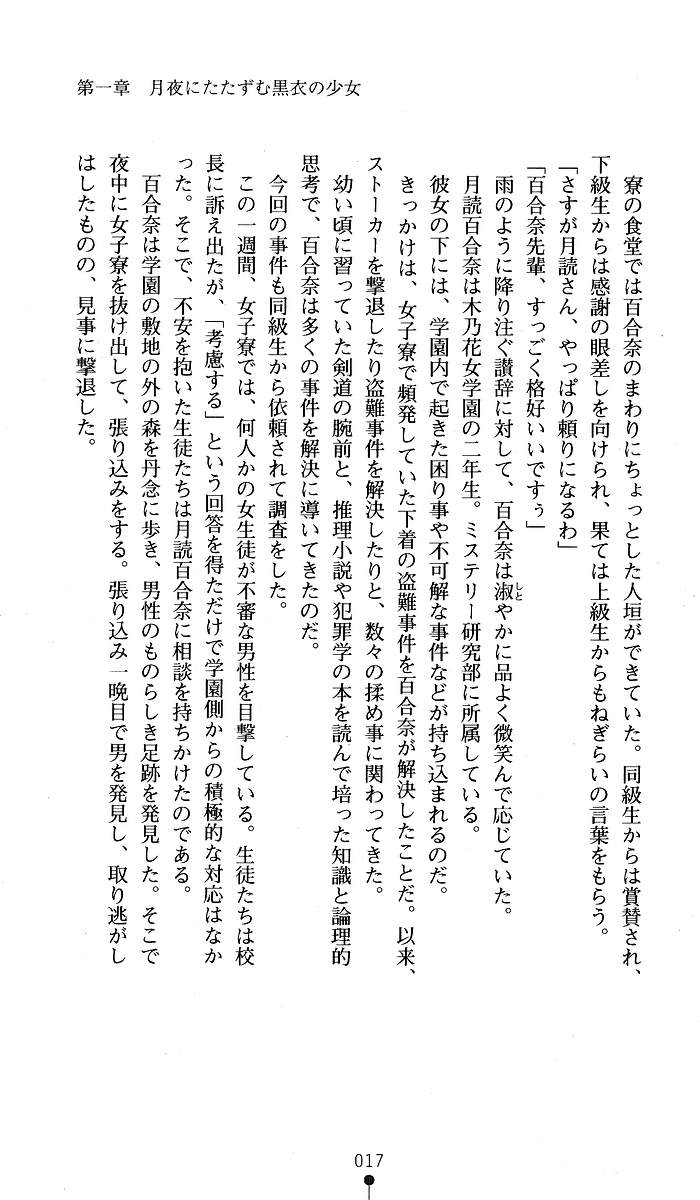 第一章　月夜にたたずむ黒衣の少女
　寮の食堂では百合奈のまわりにちょっとした人垣ができていた。同級生からは賞賛され、
下級生からは感謝の眼差しを向けられ、果ては上級生からもねぎらいの言葉をもらう。
「さすが月読さん、やっぱり頼りになるわ」
「百合奈先輩、すっごく格好いいですぅ」
　雨のように降り注ぐ讃辞に対して、百合奈は淑やかに品よく微笑んで応じていた。
しと
　月読百合奈は木乃花女学園の二年生。ミステリー研究部に所属している。
　彼女の下には、学園内で起きた困り事や不可解な事件などが持ち込まれるのだ。
　きっかけは、女子寮で頻発していた下着の盗難事件を百合奈が解決したことだ。以来、
ストーカーを撃退したり盗難事件を解決したりと、数々の揉め事に関わってきた。
　幼い頃に習っていた剣道の腕前と、推理小説や犯罪学の本を読んで培った知識と論理的
思考で、百合奈は多くの事件を解決に導いてきたのだ。
　今回の事件も同級生から依頼されて調査をした。
　この一週間、女子寮では、何人かの女生徒が不審な男性を目撃している。生徒たちは校
長に訴え出たが、「考慮する」という回答を得ただけで学園側からの積極的な対応はなか
った。そこで、不安を抱いた生徒たちは月読百合奈に相談を持ちかけたのである。
　百合奈は学園の敷地の外の森を丹念に歩き、男性のものらしき足跡を発見した。そこで
夜中に女子寮を抜け出して、張り込みをする。張り込み一晩目で男を発見し、取り逃がし
はしたものの、見事に撃退した。
017